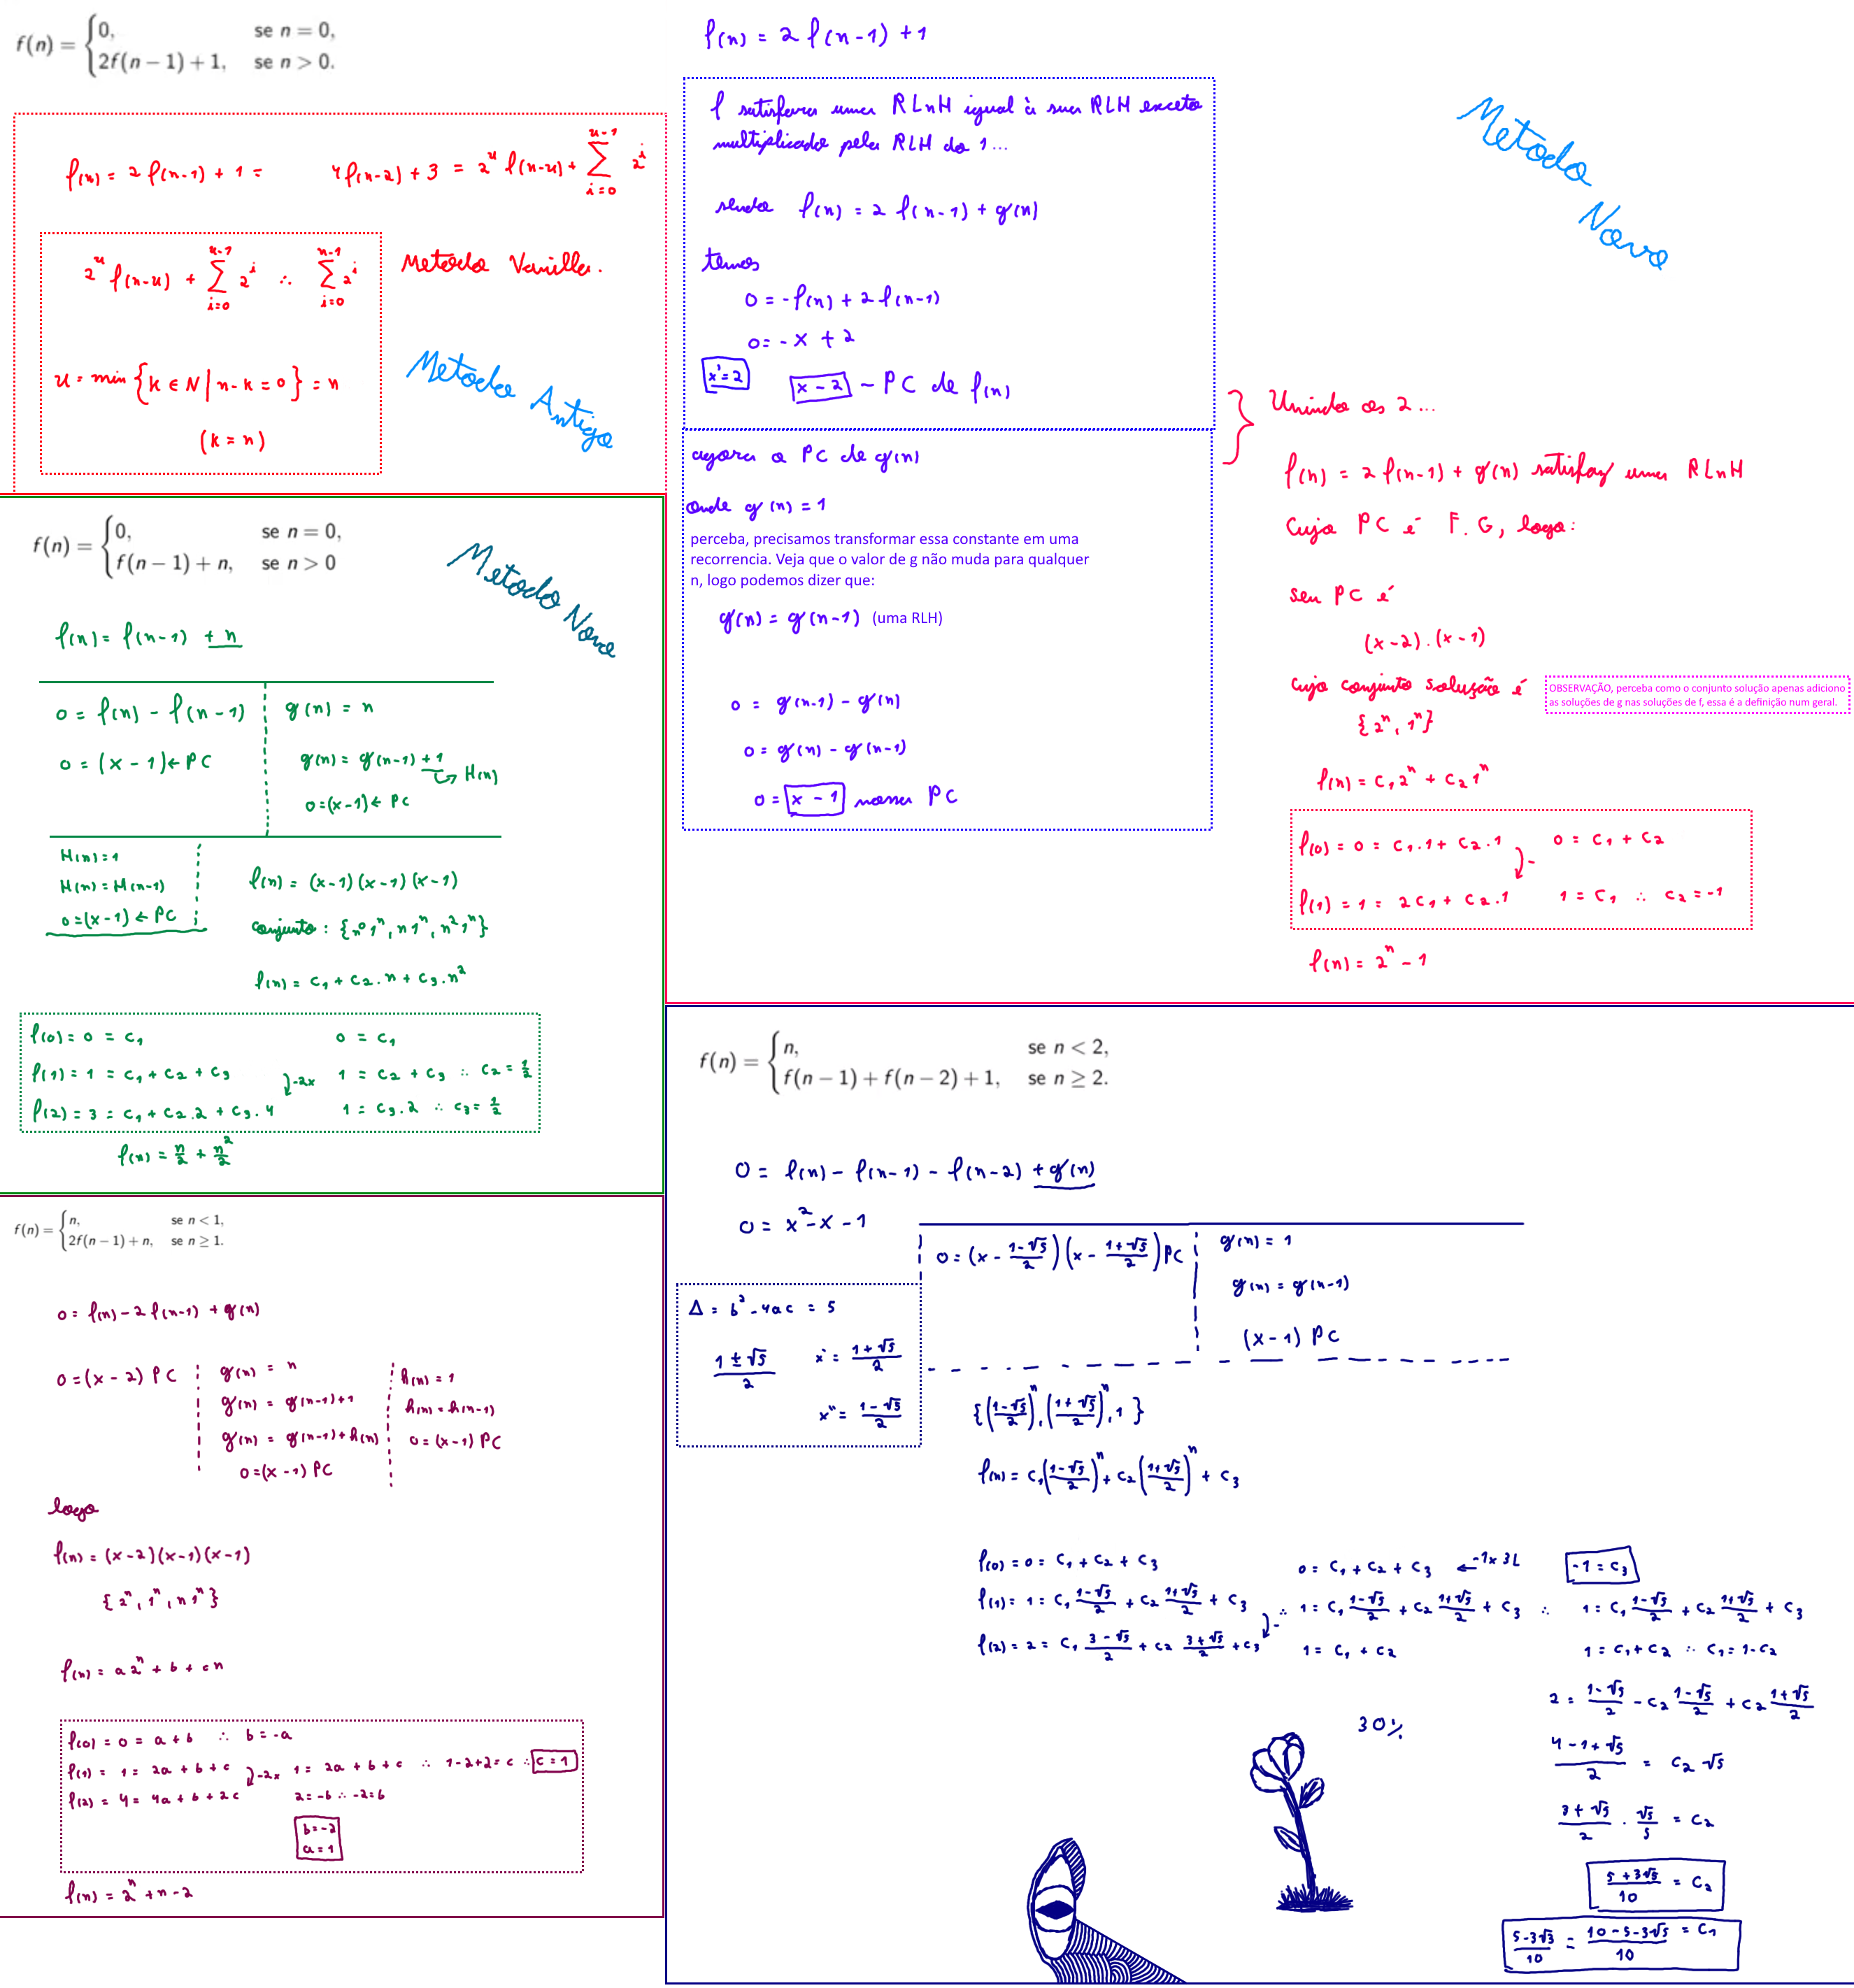 f(n) = { 0, se n = 0,
2f(n − 1) + 1, se n > 0.
f(n) = 2 f(n-1) + 1 = 4f(n-2) + 3 = 2^u f(n-u) + ∑_{i=0}^{u-1} 2^i
2^u f(n-u) + ∑_{i=0}^{u-1} 2^i ∴ ∑_{i=0}^{n-1} 2^i
Metodo Vanilla.
u = min { k ∈ N | n-k = 0 } = n
(k = n)
Metodo Antigo
f(n) = 2 f(n-1) + 1
f satisfara uma RLnH igual à sua RLH exceto
multiplicado pela RLH do 1...
sendo f(n) = 2 f(n-1) + g(n)
temos
0 = -f(n) + 2 f(n-1)
0 = -x + 2
x' = 2
x - 2 ~ PC de f(n)
agora o PC de g(n)
onde g(n) = 1
perceba, precisamos transformar essa constante em uma
recorrencia. Veja que o valor de g não muda para qualquer
n, logo podemos dizer que:
g(n) = g(n-1) (uma RLH)
0 = g(n-1) - g(n)
0 = g(n) - g(n-1)
0 = x - 1 nosso PC
Metodo Novo
Unindo os 2...
f(n) = 2 f(n-1) + g(n) satisfaz uma RLnH
Cujo PC é F.G, logo:
seu PC é
(x-2).(x-1)
cujo conjunto solução é
{2^n, 1^n}
OBSERVAÇÃO, perceba como o conjunto solução apenas adiciono
as soluções de g nas soluções de f, essa é a definição num geral.
f(n) = C₁2^n + C₂1^n
f(0) = 0 = C₁.1 + C₂.1 0 = C₁ + C₂
f(1) = 1 = 2C₁ + C₂.1 ⤸- 1 = C₁ ∴ C₂ = -1
f(n) = 2^n - 1
f(n) = { 0, se n = 0,
f(n − 1) + n, se n > 0
Metodo Novo
f(n) = f(n-1) + n
0 = f(n) - f(n-1)
0 = (x-1) ← PC
g(n) = n
g(n) = g(n-1) + 1 ↪ H(n)
0 = (x-1) ← PC
H(n) = 1
H(n) = H(n-1)
0 = (x-1) ← PC
f(n) = (x-1)(x-1)(x-1)
conjunto: {n⁰1^n, n1^n, n²1^n}
f(n) = C₁ + C₂.n + C₃.n²
f(0) = 0 = C₁ 0 = C₁
f(1) = 1 = C₁ + C₂ + C₃ ⤸-2x 1 = C₂ + C₃ ∴ C₂ = 1/2
f(2) = 3 = C₁ + C₂.2 + C₃.4 1 = C₃.2 ∴ C₃ = 1/2
f(n) = n/2 + n²/2
f(n) = { n, se n < 1,
2f(n − 1) + n, se n ≥ 1.
0 = f(n) - 2 f(n-1) + g(n)
0 = (x-2) PC
g(n) = n
g(n) = g(n-1) + 1
g(n) = g(n-1) + h(n)
0 = (x-1) PC
h(n) = 1
h(n) = h(n-1)
0 = (x-1) PC
logo
f(n) = (x-2)(x-1)(x-1)
{2^n, 1^n, n1^n}
f(n) = a2^n + b + cn
f(0) = 0 = a + b ∴ b = -a
f(1) = 1 = 2a + b + c ⤸-2x 1 = 2a + b + c ∴ 1-2+2 = c ∴ c = 1
f(2) = 4 = 4a + b + 2c 2 = -b ∴ -2 = b
b = -2
a = 1
f(n) = 2^n + n - 2
f(n) = { n, se n < 2,
f(n − 1) + f(n − 2) + 1, se n ≥ 2.
0 = f(n) - f(n-1) - f(n-2) + g(n)
0 = x² - x - 1
0 = (x - (1-√5)/2)(x - (1+√5)/2) PC
g(n) = 1
g(n) = g(n-1)
(x-1) PC
Δ = b² - 4ac = 5
(1 ± √5)/2
x' = (1+√5)/2
x'' = (1-√5)/2
{((1-√5)/2)^n, ((1+√5)/2)^n, 1}
f(n) = C₁((1-√5)/2)^n + C₂((1+√5)/2)^n + C₃
f(0) = 0 = C₁ + C₂ + C₃ 0 = C₁ + C₂ + C₃ ← -1x 3L -1 = C₃
f(1) = 1 = C₁ (1-√5)/2 + C₂ (1+√5)/2 + C₃ ∴ 1 = C₁ (1-√5)/2 + C₂ (1+√5)/2 + C₃ ∴ 1 = C₁ (1-√5)/2 + C₂ (1+√5)/2 + C₃
f(2) = 2 = C₁ (3-√5)/2 + C₂ (3+√5)/2 + C₃ ⤸- 1 = C₁ + C₂ 1 = C₁ + C₂ ∴ C₁ = 1-C₂
2 = (1-√5)/2 - C₂ (1-√5)/2 + C₂ (1+√5)/2
30%
(4-1+√5)/2 = C₂ √5
(3+√5)/2 . √5/5 = C₂
(5+3√5)/10 = C₂
(5-3√5)/10 = (10-5-3√5)/10 = C₁